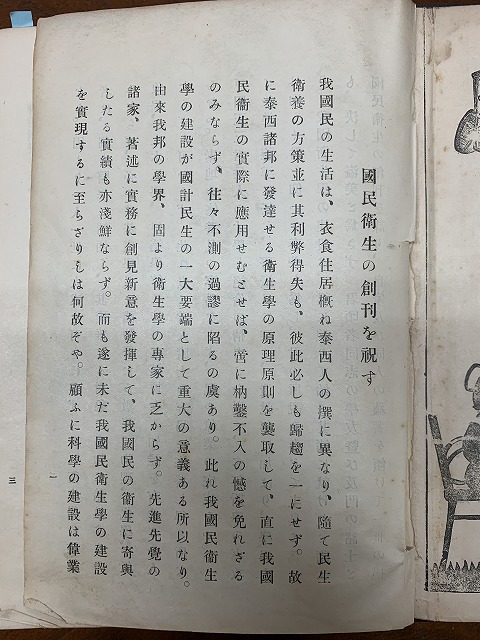 國民衞生の創刊を祝す
我國民の生活は、衣食住居槪ね泰西人の撰に異なり、隨て民生
衞養の方策並に其利弊得失も、彼此必しも歸趨を一にせず。故
に泰西諸邦に發達せる衞生學の原理原則を襲取して、直に我國
民衞生の實際に應用せむとせば、啻に枘鑿不入の憾を免れざる
のみならず、往々不測の過謬に陷るの虞あり。此れ我國民衞生
學の建設が國計民生の一大要端として重大の意義ある所以なり。
由來我邦の學界、固より衞生學の專家に乏からず。先進先覺の
諸家、著述に實務に創見新意を發揮して、我國民の衞生に寄與
したる實績も亦淺鮮ならず。而も遂に未だ我國民衞生學の建設
を實現するに至らざりしは何故ぞや。顧ふに科學の建設は偉業
一
三